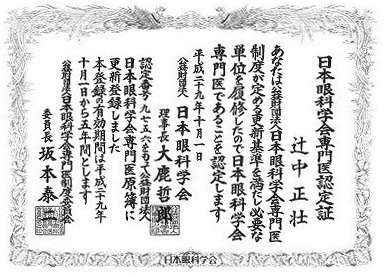 日本眼科学会専門医認定証
辻中正壮
あなたは公益財団法人日本眼科学会専門医
制度が定める更新基準を満たし必要な
単位を履修したので日本眼科学会
専門医であることを認定します
平成二十九年十月一日
公益財団法人 日本眼科学会
理事長 大鹿哲郎
認定番号九七五六をもって公益財団法人
日本眼科学会専門医原簿に
更新登録しました
本登録の有効期間は平成二十九年
十月一日から五年間とします
公益財団法人日本眼科学会専門医制度委員会
委員長 坂本泰二
日本眼科学会